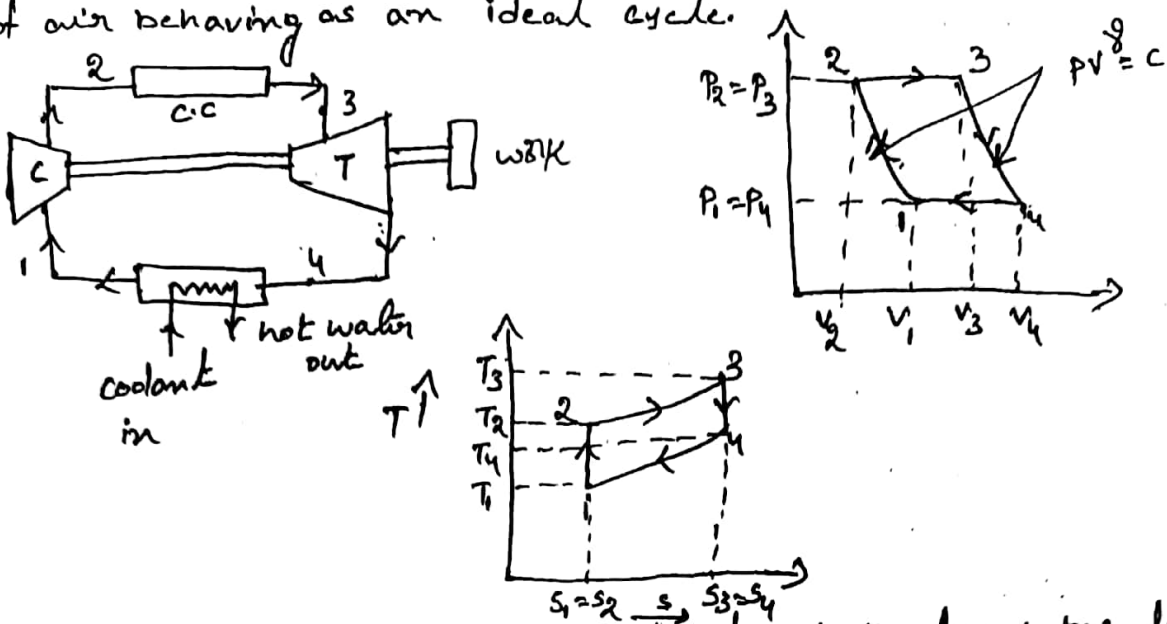 of air behaving as an ideal cycle.
2
C.C
3
C
T
work
1
4
coolant
in
hot water
out
2
3
PV^γ = C
P2 = P3
P1 = P4
1
4
V2
V1
V3
V4
T
T3
T2
T4
T1
2
3
4
1
S1 = S2
s
S3 = S4